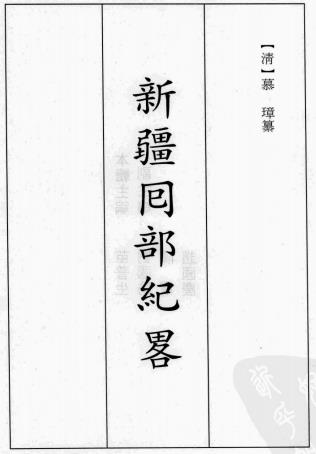 【清】慕 璋纂
新疆囘部紀畧